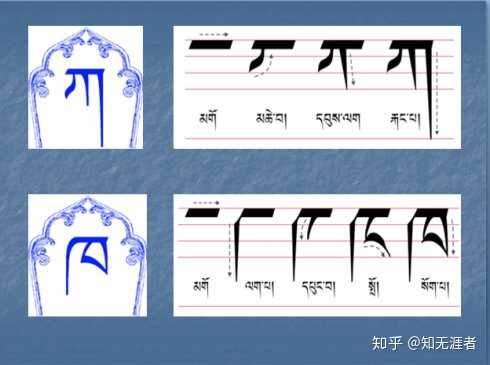 ཀ
མགོ མཆེ་བ། དབུས་ལག རྐང་པ།
ཁ
མགོ ལག་པ། དཔུང་བ། སྤྲོ། སོག་པ།
知乎 @知无涯者